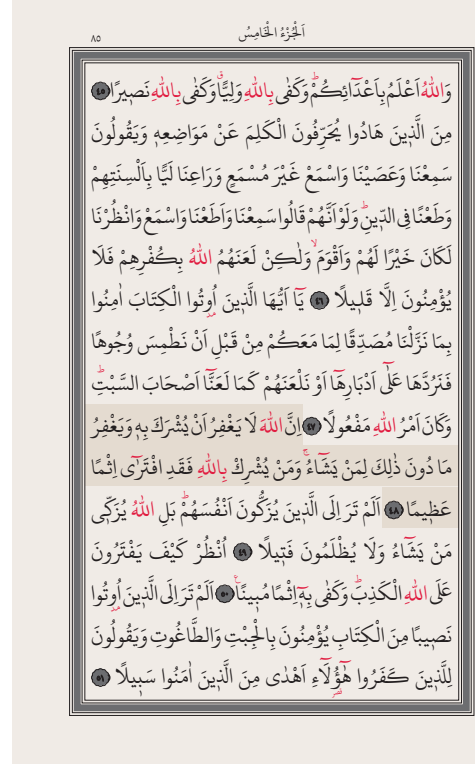 اَلْجُزْءُ الْخَامِسُ
٨٥
وَاللّٰهُ اَعْلَمُ بِاَعْدَٓائِكُمْۜ وَكَفٰى بِاللّٰهِ وَلِيًّاۗ وَكَفٰى بِاللّٰهِ نَص۪يرًا ﴿٤٥﴾
مِنَ الَّذ۪ينَ هَادُوا يُحَرِّفُونَ الْكَلِمَ عَنْ مَوَاضِعِه۪ وَيَقُولُونَ
سَمِعْنَا وَعَصَيْنَا وَاسْمَعْ غَيْرَ مُسْمَعٍ وَرَاعِنَا لَيًّا بِاَلْسِنَتِهِمْ
وَطَعْنًا فِي الدّ۪ينِۜ وَلَوْ اَنَّهُمْ قَالُوا سَمِعْنَا وَاَطَعْنَا وَاسْمَعْ وَانْظُرْنَا
لَكَانَ خَيْرًا لَهُمْ وَاَقْوَمَۙ وَلٰكِنْ لَعَنَهُمُ اللّٰهُ بِكُفْرِهِمْ فَلَا
يُؤْمِنُونَ اِلَّا قَل۪يلًا ﴿٤٦﴾ يَٓا اَيُّهَا الَّذ۪ينَ اُو۫تُوا الْكِتَابَ اٰمِنُوا
بِمَا نَزَّلْنَا مُصَدِّقًا لِمَا مَعَكُمْ مِنْ قَبْلِ اَنْ نَطْمِسَ وُجُوهًا
فَنَرُدَّهَا عَلٰٓى اَدْبَارِهَٓا اَوْ نَلْعَنَهُمْ كَمَا لَعَنَّٓا اَصْحَابَ السَّبْتِۜ
وَكَانَ اَمْرُ اللّٰهِ مَفْعُولًا ﴿٤٧﴾ اِنَّ اللّٰهَ لَا يَغْفِرُ اَنْ يُشْرَكَ بِه۪ وَيَغْفِرُ
مَا دُونَ ذٰلِكَ لِمَنْ يَشَٓاءُۚ وَمَنْ يُشْرِكْ بِاللّٰهِ فَقَدِ افْتَرٰٓى اِثْمًا
عَظ۪يمًا ﴿٤٨﴾ اَلَمْ تَرَ اِلَى الَّذ۪ينَ يُزَكُّونَ اَنْفُسَهُمْۜ بَلِ اللّٰهُ يُزَكّ۪ي
مَنْ يَشَٓاءُ وَلَا يُظْلَمُونَ فَت۪يلًا ﴿٤٩﴾ اُنْظُرْ كَيْفَ يَفْتَرُونَ
عَلَى اللّٰهِ الْكَذِبَۜ وَكَفٰى بِه۪ٓ اِثْمًا مُب۪ينًا۟ ﴿٥٠﴾ اَلَمْ تَرَ اِلَى الَّذ۪ينَ اُو۫تُوا
نَص۪يبًا مِنَ الْكِتَابِ يُؤْمِنُونَ بِالْجِبْتِ وَالطَّاغُوتِ وَيَقُولُونَ
لِلَّذ۪ينَ كَفَرُوا هٰٓؤُ۬لَٓاءِ اَهْدٰى مِنَ الَّذ۪ينَ اٰمَنُوا سَب۪يلًا ﴿٥١﴾